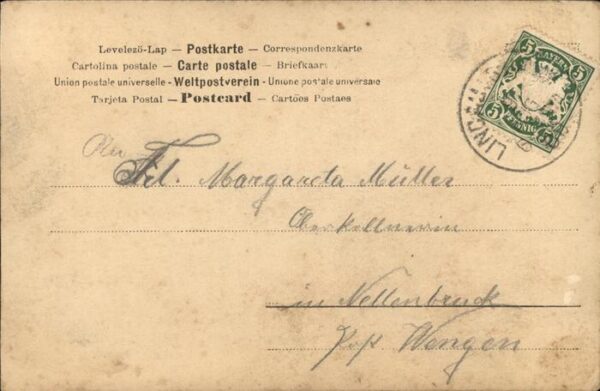 Levelező-Lap — Postkarte — Correspondenzkarte
Cartolina postale — Carte postale — Briefkaart
Union postale universelle — Weltpostverein — Unione postale universale
Tarjeta Postal — Postcard — Cartões Postaes
5 BAYERN 5
5 PFENNIG 5
LIND
An
Frl. Margareta Müller
Oberkellnerin
in Nellenbruck
Post Wengen